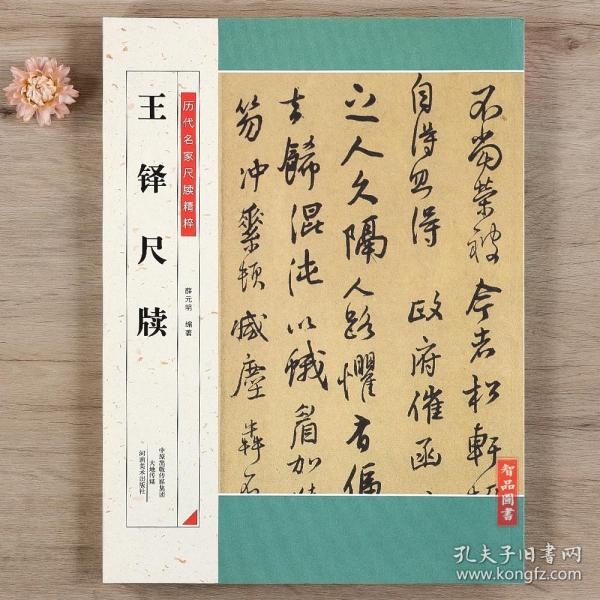 历代名家尺牍精粹
王铎尺牍
薛元明 编著
中原出版传媒集团
大地传媒
河南美术出版社
不当荣被今者松轩
自得忽得 政府催函
之人久隔人路惧有偏
去归混沌以蛾眉加
笏冲繁顿减尘轶不
智品圖書
孔夫子旧书网
www.kongfz.com